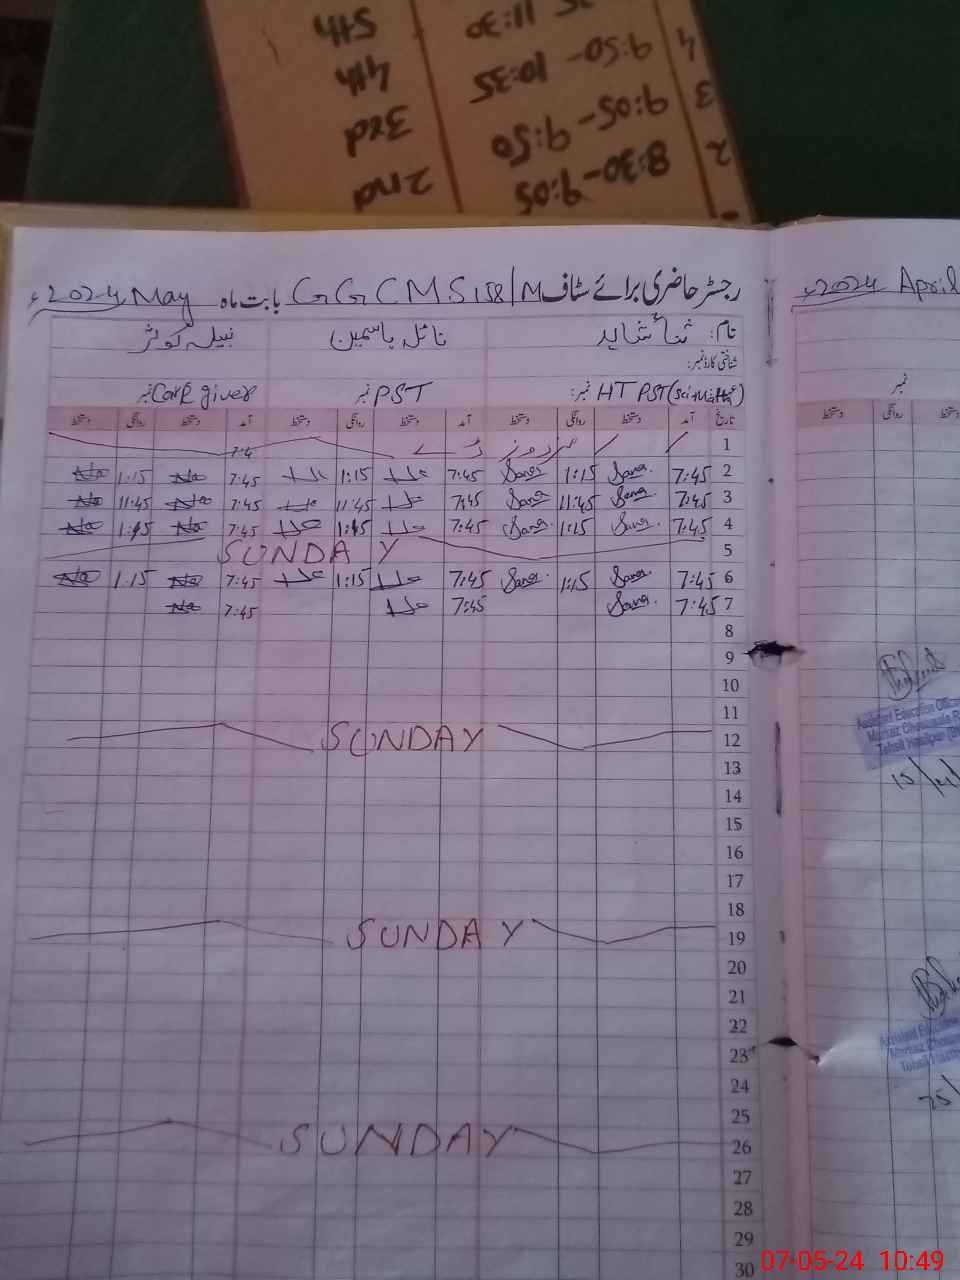 5th
11:30
4th
9:50- 10:35
4
3rd
9:05- 9:50
3
2nd
8:30-9:05
2
رجسٹر حاضری برائے سٹاف GGCMS 158/M بابت ماہ May 2024ء
April 2024ء
نام: ثنا شاہد نائلہ یاسمین نبیلہ کوثر
شناختی کارڈ نمبر:
نمبر: HT PST نمبر PST نمبر Care giver
نمبر
تاریخ آمد دستخط روانگی دستخط آمد دستخط روانگی دستخط آمد دستخط روانگی دستخط
دستخط دستخط
1
2 7:45 Sana. 1:15 Sana 7:45 1:15 7:45 1:15
3 7:45 Sana. 11:45 Sana 7:45 11:45 7:45 11:45
4 7:45 Sana. 1:15 Sana. 7:45 7:45
5 SUNDAY
6 7:45 Sana. 1:15 Sana. 7:45 1:15 7:45 1:15
7 7:45 Sana. 7:45 7:45
8
9
10
11
12 SUNDAY
13
14
15
16
17
18
19 SUNDAY
20
21
22
23
24
25
26 SUNDAY
27
28
29
30
Assistant Education Officer
Markaz
Tehsil
07-05-24 10:49